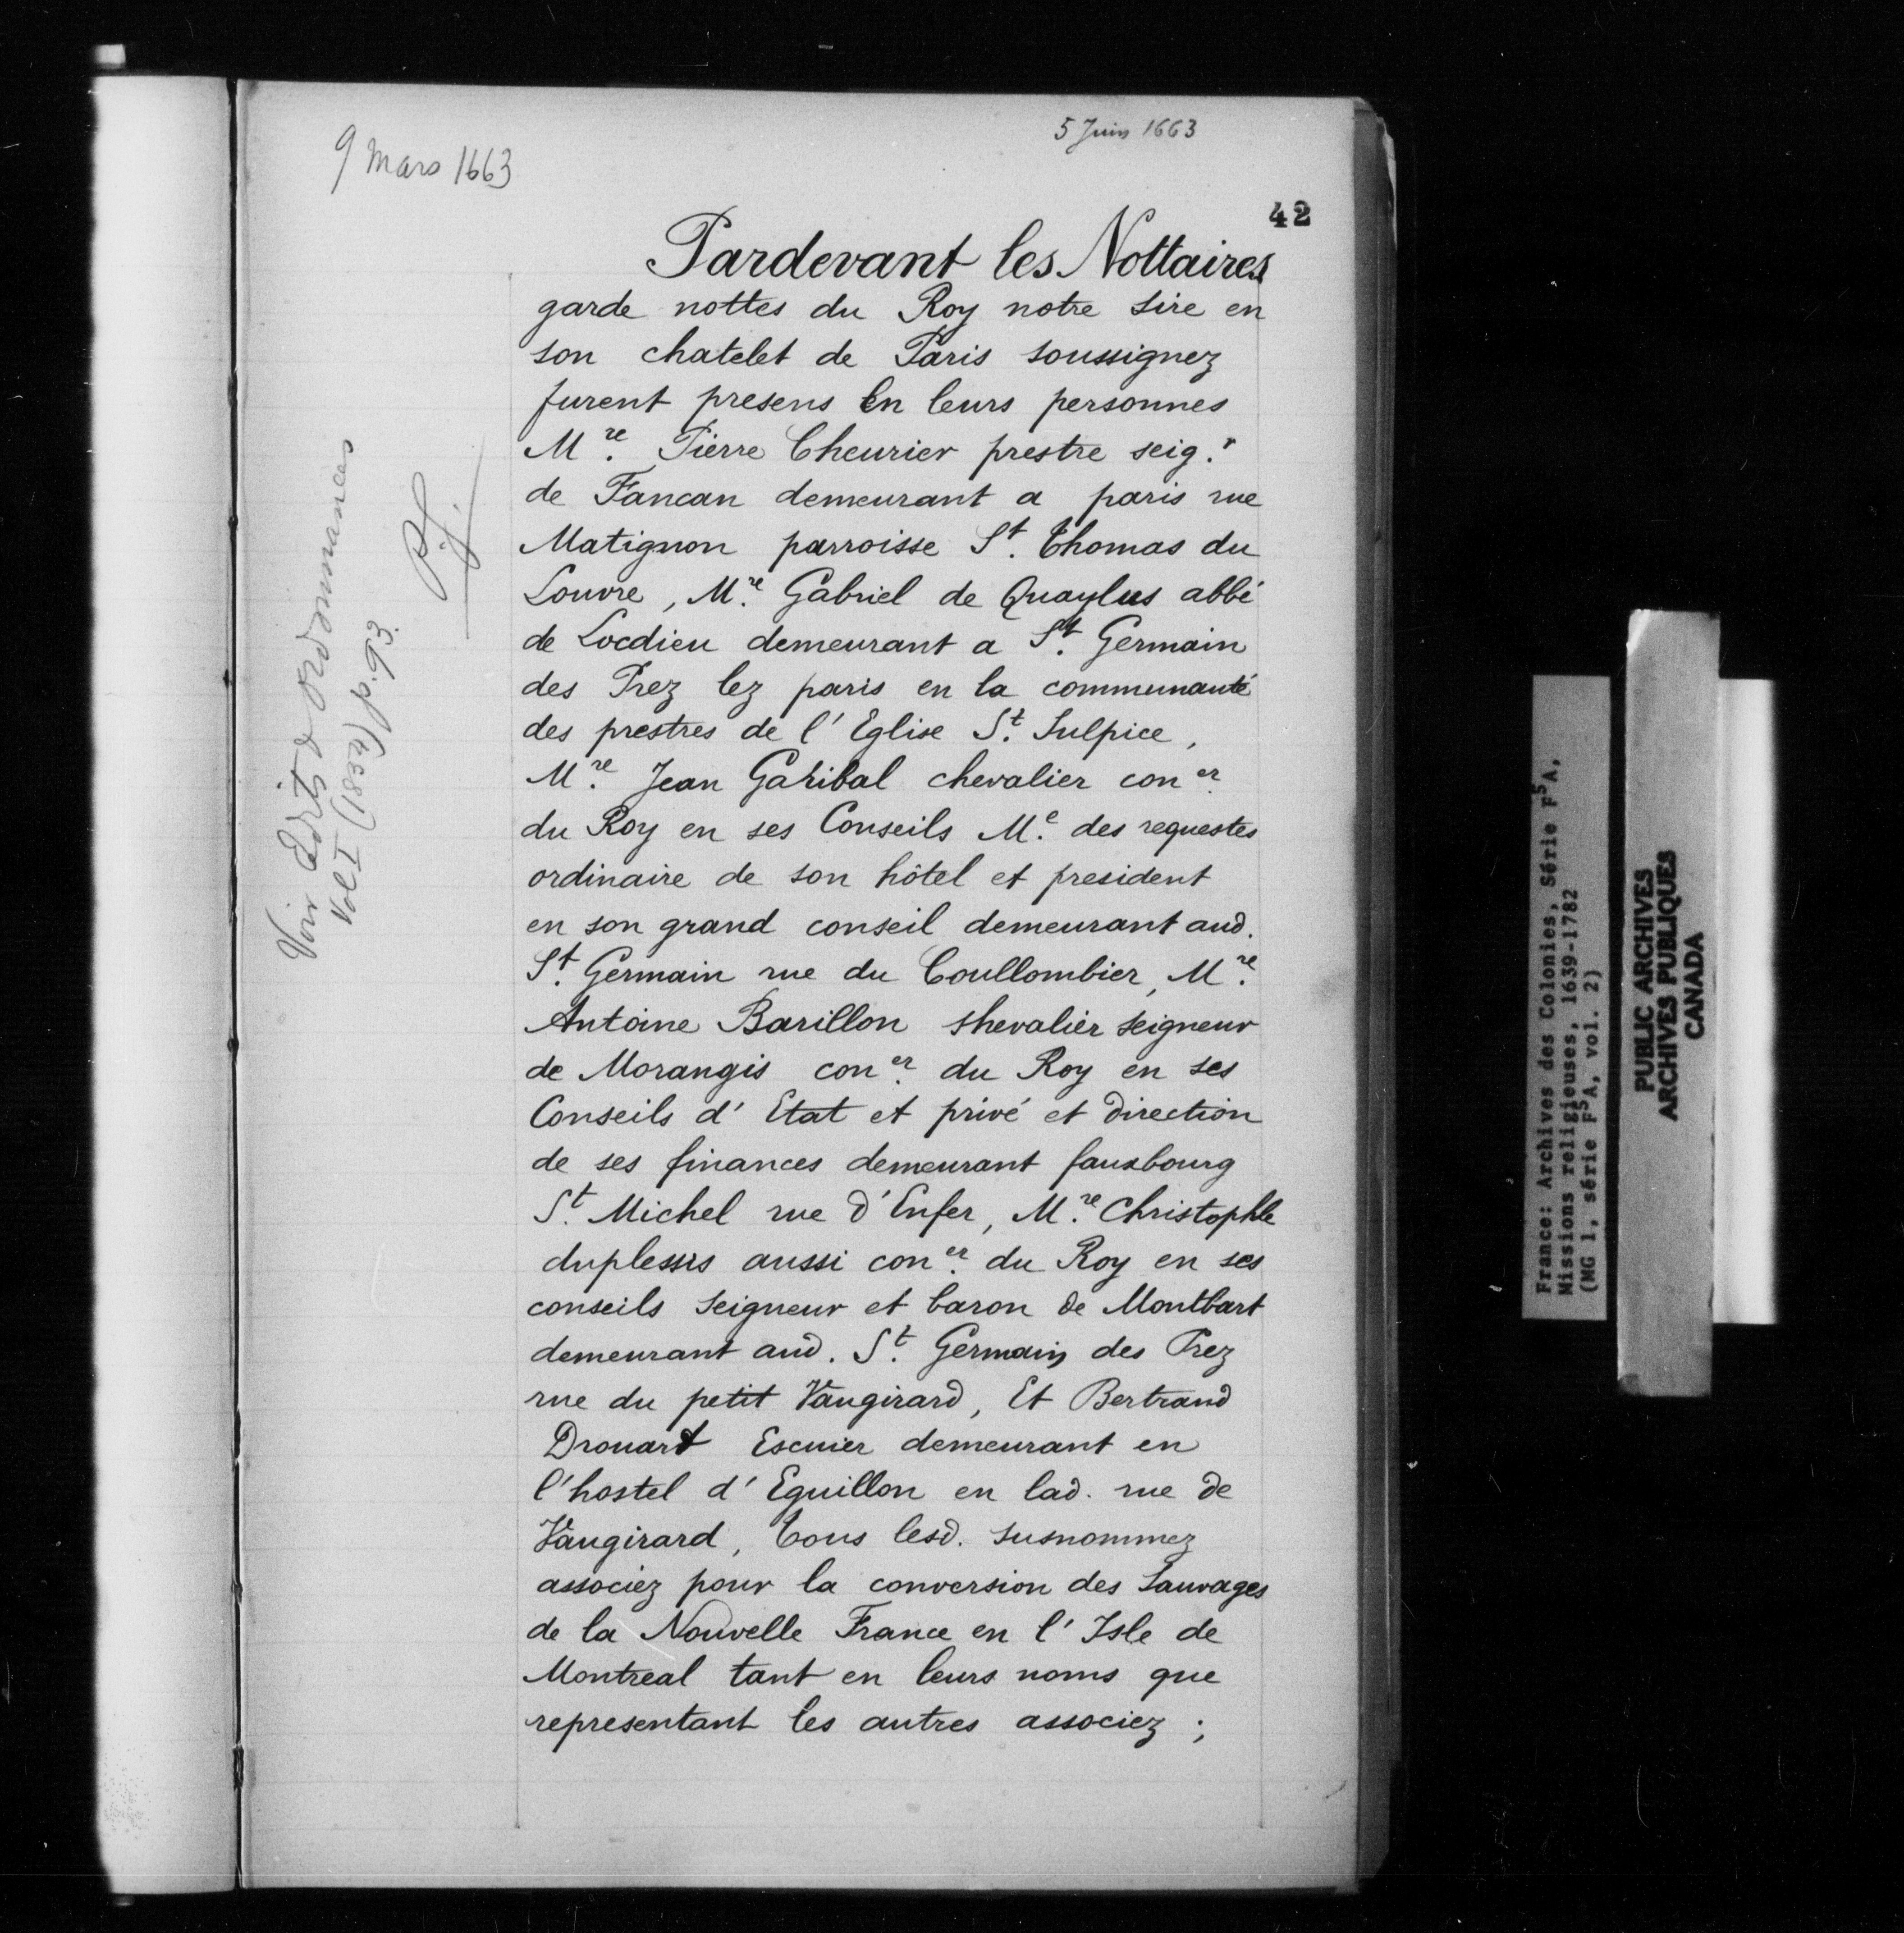 5 Juin 1663
9 Mars 1663
42
Pardevant les Nottaires
garde nottes du Roy notre sire en
son chatelet de Paris soussignez
furent presens En leurs personnes
M.re Pierre Cheurier prestre seig.r
de Fancan demeurant a paris rue
Matignon parroisse S.t Thomas du
Louvre, M.re Gabriel de Quaylus abbé
de Locdieu demeurant a S.t Germain
des Prez lez paris en la communauté
des prestres de l'Eglise S.t Sulpice,
M.re Jean Garibal chevalier con.er
du Roy en ses Conseils M.e des requestes
ordinaire de son hôtel et president
en son grand conseil demeurant aud.
S.t Germain rue du Coullombier, M.re
Antoine Barillon shevalier seigneur
de Morangis con.er du Roy en ses
Conseils d'Etat et privé et direction
de ses finances demeurant fauxbourg
S.t Michel rue d'Enfer, M.re Christophle
duplessis aussi con.er du Roy en ses
conseils seigneur et baron de Montbart
demeurant aud. S.t Germain des Prez
rue du petit Vaugirard, Et Bertrand
Drouart Escuier demeurant en
l'hostel d'Eguillon en lad. rue de
Vaugirard, Tous lesd. susnommez
associez pour la conversion des Sauvages
de la Nouvelle France en l'Isle de
Montreal tant en leurs noms que
representant les autres associez ;
Voir Edits & Ordonnances
Vol I (1854) p. 93.
France: Archives des Colonies, Série F5A,
Missions religieuses, 1639-1782
(MG 1, série F5A, vol. 2)
PUBLIC ARCHIVES
ARCHIVES PUBLIQUES
CANADA